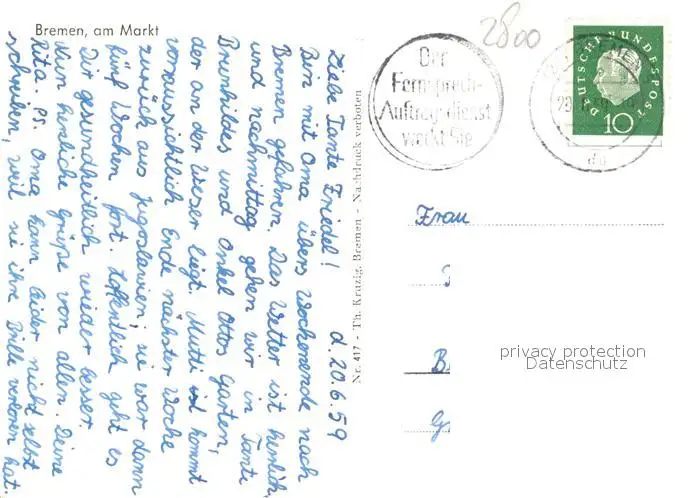 Bremen, am Markt
d. 20.6.59
Liebe Tante Friedel!
Bin mit Oma übers Wochenende nach
Bremen gefahren. Das Wetter ist herrlich
und nachmittag gehen wir in Tante
Brunhildes und Onkel Ottos Garten,
der an der Weser liegt. Mutti ist kommt
voraussichtlich Ende nächster Woche
zurück aus Jugoslawien, sie war dann
fünf Wochen fort. Hoffentlich geht es
Dir gesundheitlich wieder besser.
Nun herzliche Grüße von allen. Deine
Rita. PS. Oma kann leider nicht selbst
schreiben, weil sie ihre Brille verloren hat.
Nr. 417 - Th. Kruzig, Bremen - Nachdruck verboten
2800
Der
Fernsprech-
Auftragsdienst
weckt Sie
DEUTSCHE BUNDESPOST
10
Frau
B
G
privacy protection
Datenschutz